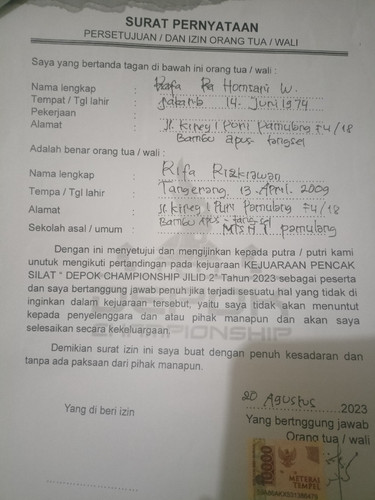 SURAT PERNYATAAN
PERSETUJUAN / DAN IZIN ORANG TUA / WALI
Saya yang bertanda tagan di bawah ini orang tua / wali :
Nama lengkap : W.
Tempat / Tgl lahir : Jakarta 14. Juni 1974
Pekerjaan :
Alamat : Jl. Kirey I Puri Pamulang F4/18
Bambu apus tangsel
Adalah benar orang tua / wali :
Nama lengkap : Rifa Rizkiawan
Tempa / Tgl lahir : Tangerang, 13 April. 2009
Alamat : Jl. Kirey I Puri Pamulang F4/18
Bambu Apus - tang-sel
Sekolah asal / umum : MTs pamulang
Dengan ini menyetujui dan mengijinkan kepada putra / putri kami
unutuk mengikuti pertandingan pada kejuaraan KEJUARAAN PENCAK
SILAT " DEPOK CHAMPIONSHIP JILID 2" Tahun 2023 sebagai peserta
dan saya bertanggung jawab penuh jika terjadi sesuatu hal yang tidak di
inginkan dalam kejuaraan tersebut, yaitu saya tidak akan menuntut
kepada penyelenggara dan atau pihak manapun dan akan saya
selesaikan secara kekeluargaan.
CHAMPIONSHIP
Demikian surat izin ini saya buat dengan penuh kesadaran dan
tanpa ada paksaan dari pihak manapun.
20 Agustus 2023
Yang di beri izin
Yang bertnggung jawab
Orang tua / wali
10000
METERAI
TEMPEL